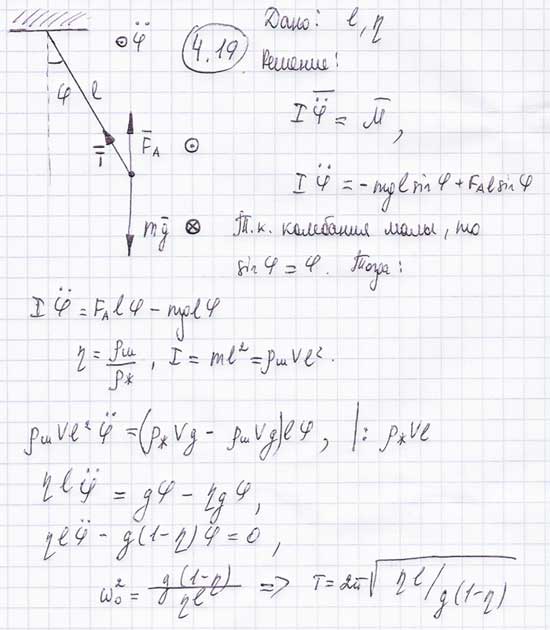 φ̈
4.19
Дано: l, η
Решение:
φ l
T̄
F̄_A
mḡ
I φ̈ = M̄,
I φ̈ = -mgl sinφ + F_A l sinφ
Т.к. колебания малы, то
sinφ = φ. Тогда:
I φ̈ = F_A lφ - mglφ
η = ρ_ш/ρ_ж, I = ml² = ρ_ш V l².
ρ_ш V l² φ̈ = (ρ_ж V g - ρ_ш V g) l φ, |: ρ_ж V l
η l φ̈ = gφ - ηgφ,
η l φ̈ - g(1-η)φ = 0,
ω₀² = g(1-η)/ηl => T = 2π √(ηl/g(1-η))